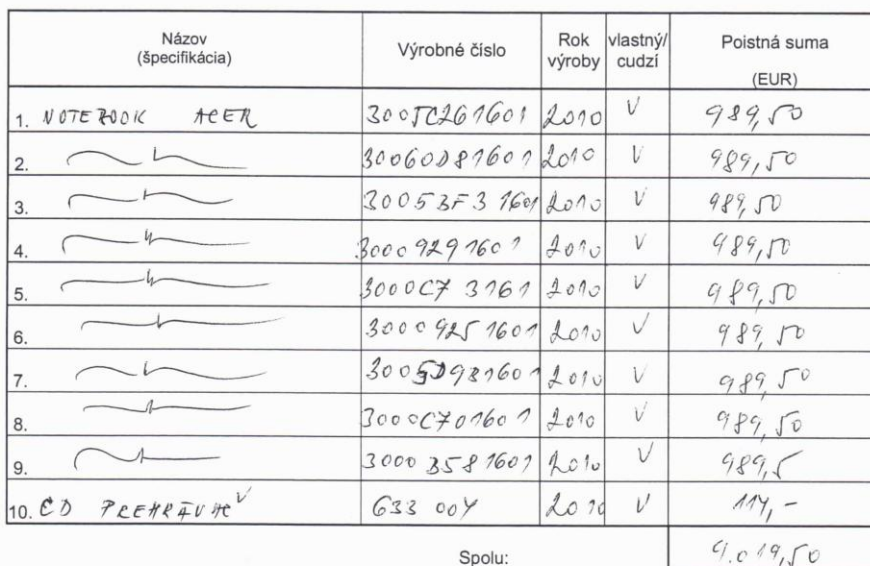 Názov (špecifikácia) Výrobné číslo Rok výroby vlastný/ cudzí Poistná suma (EUR)
1. NOTEBOOK ACER 3005C261601 2010 V 989,50
2. 30060D81601 2010 V 989,50
3. 30053F31601 2010 V 989,50
4. 30009291601 2010 V 989,50
5. 3000C73161 2010 V 989,50
6. 30009251601 2010 V 989,50
7. 2010 V 989,50
8. 3000C701601 2010 V 989,50
9. 3000B581601 2010 V 989,5
10. CD PREHRÁVAČ 633 004 2010 V 114,-
Spolu: 9.019,50